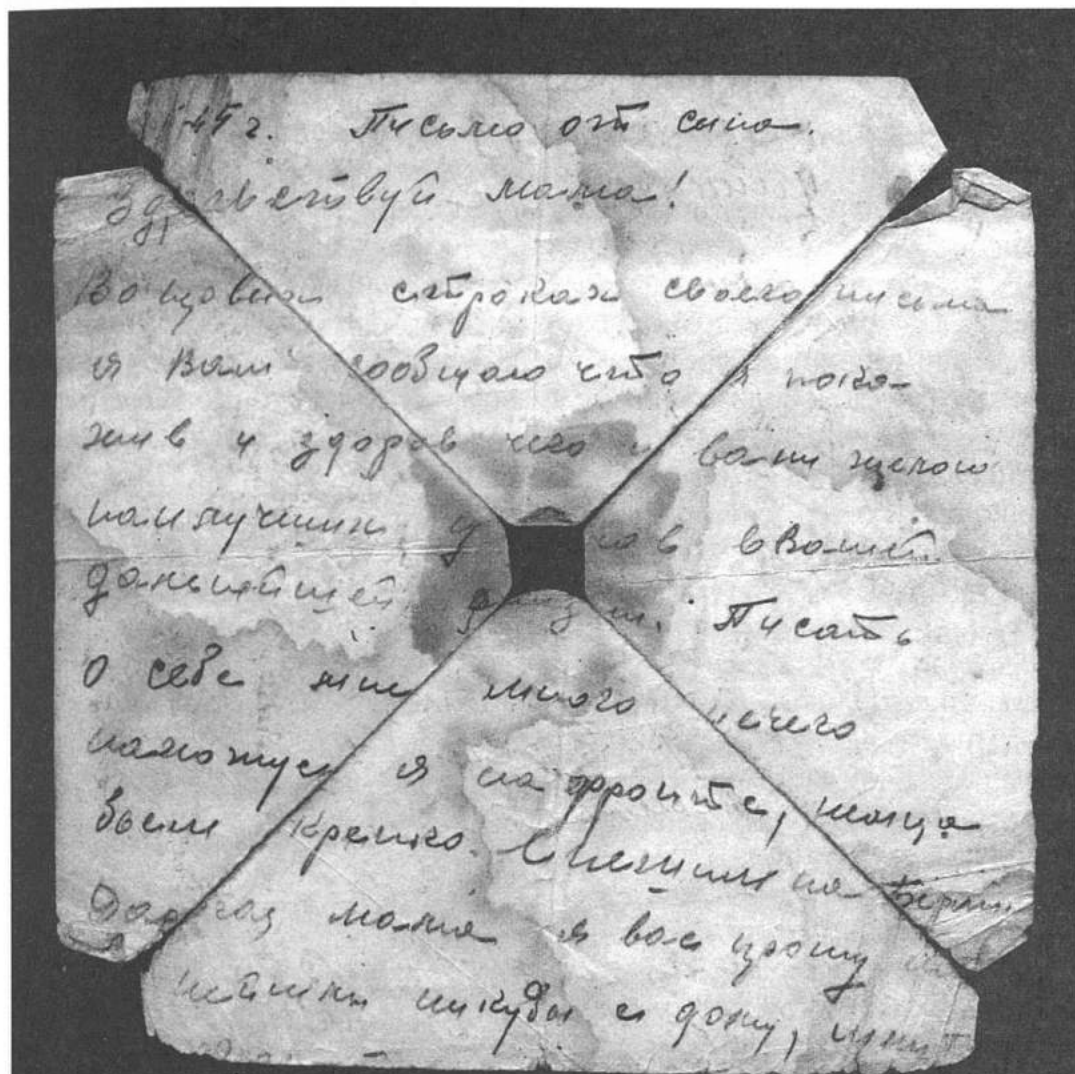 45 г. Письмо от сына.
Здравствуй мама!
Во первых строках своего письма
я Вам сообщаю что я пока
жив и здоров чего и вам желаю
наилучших в Вашей
дальнейшей жизни. Писать
о себе мне много нечего
нахожусь я на фронте, немца
бьем крепко. Спешим на Берлин
Дорогая мама я вас прошу
никуды с дому,